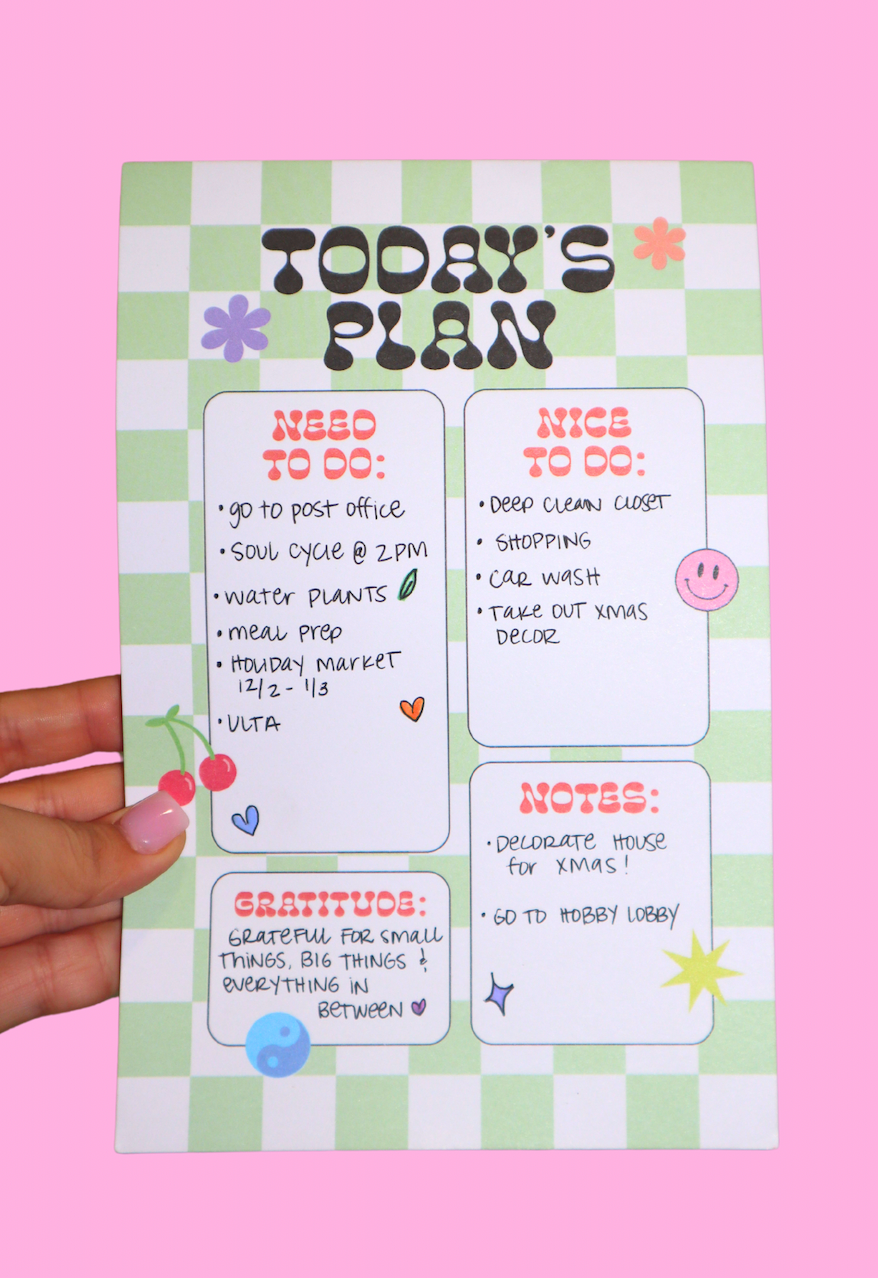 TODAY'S
PLAN
NEED
TO DO:
• go to post office
• SOUL CYCLE @ 2PM
• water PLANTS
• meal prep
• HOLIDAY market
12/2 - 1/3
• ULTA
NICE
TO DO:
• DEEP CLEAN CLOSET
• SHOPPING
• CAR WASH
• TAKE OUT XMAS
DECOR
GRATITUDE:
GRATEFUL FOR small
THINGS, BIG THINGS &
EVERYTHING IN
BETWEEN
NOTES:
• DECORATE HOUSE
for XMAS!
• GO TO HOBBY LOBBY